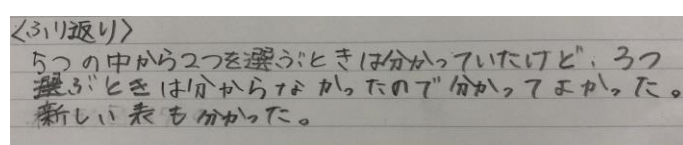 〈ふり返り〉
5つの中から2つを選ぶときは分かっていたけど、3つ
選ぶときは分からなかったので分かってよかった。
新しい表も分かった。